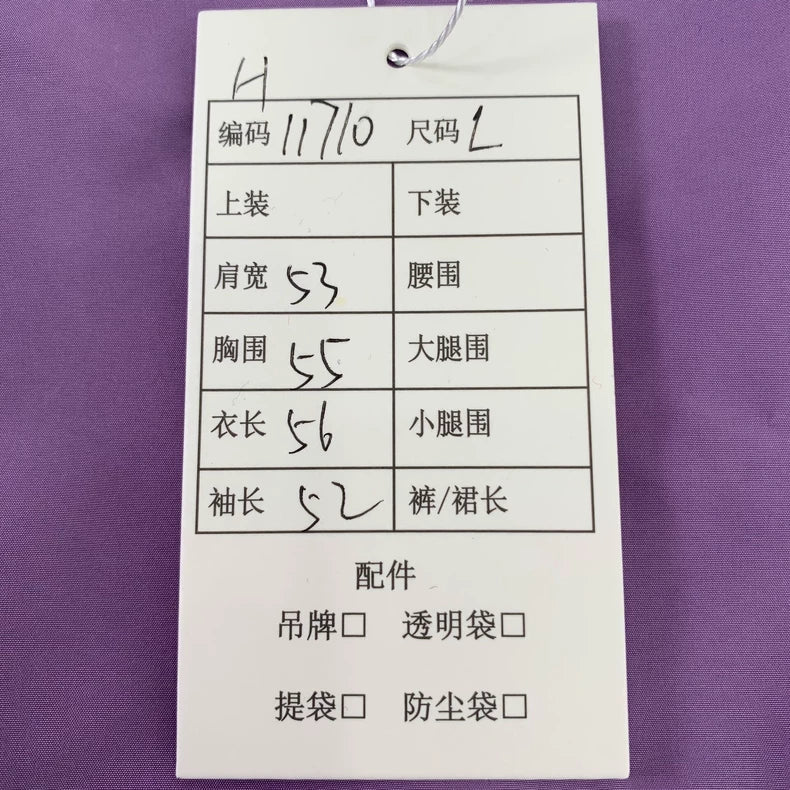 H
编码 11710 尺码 L
上装 下装
肩宽 53 腰围
胸围 55 大腿围
衣长 56 小腿围
袖长 52 裤/裙长
配件
吊牌□ 透明袋□
提袋□ 防尘袋□